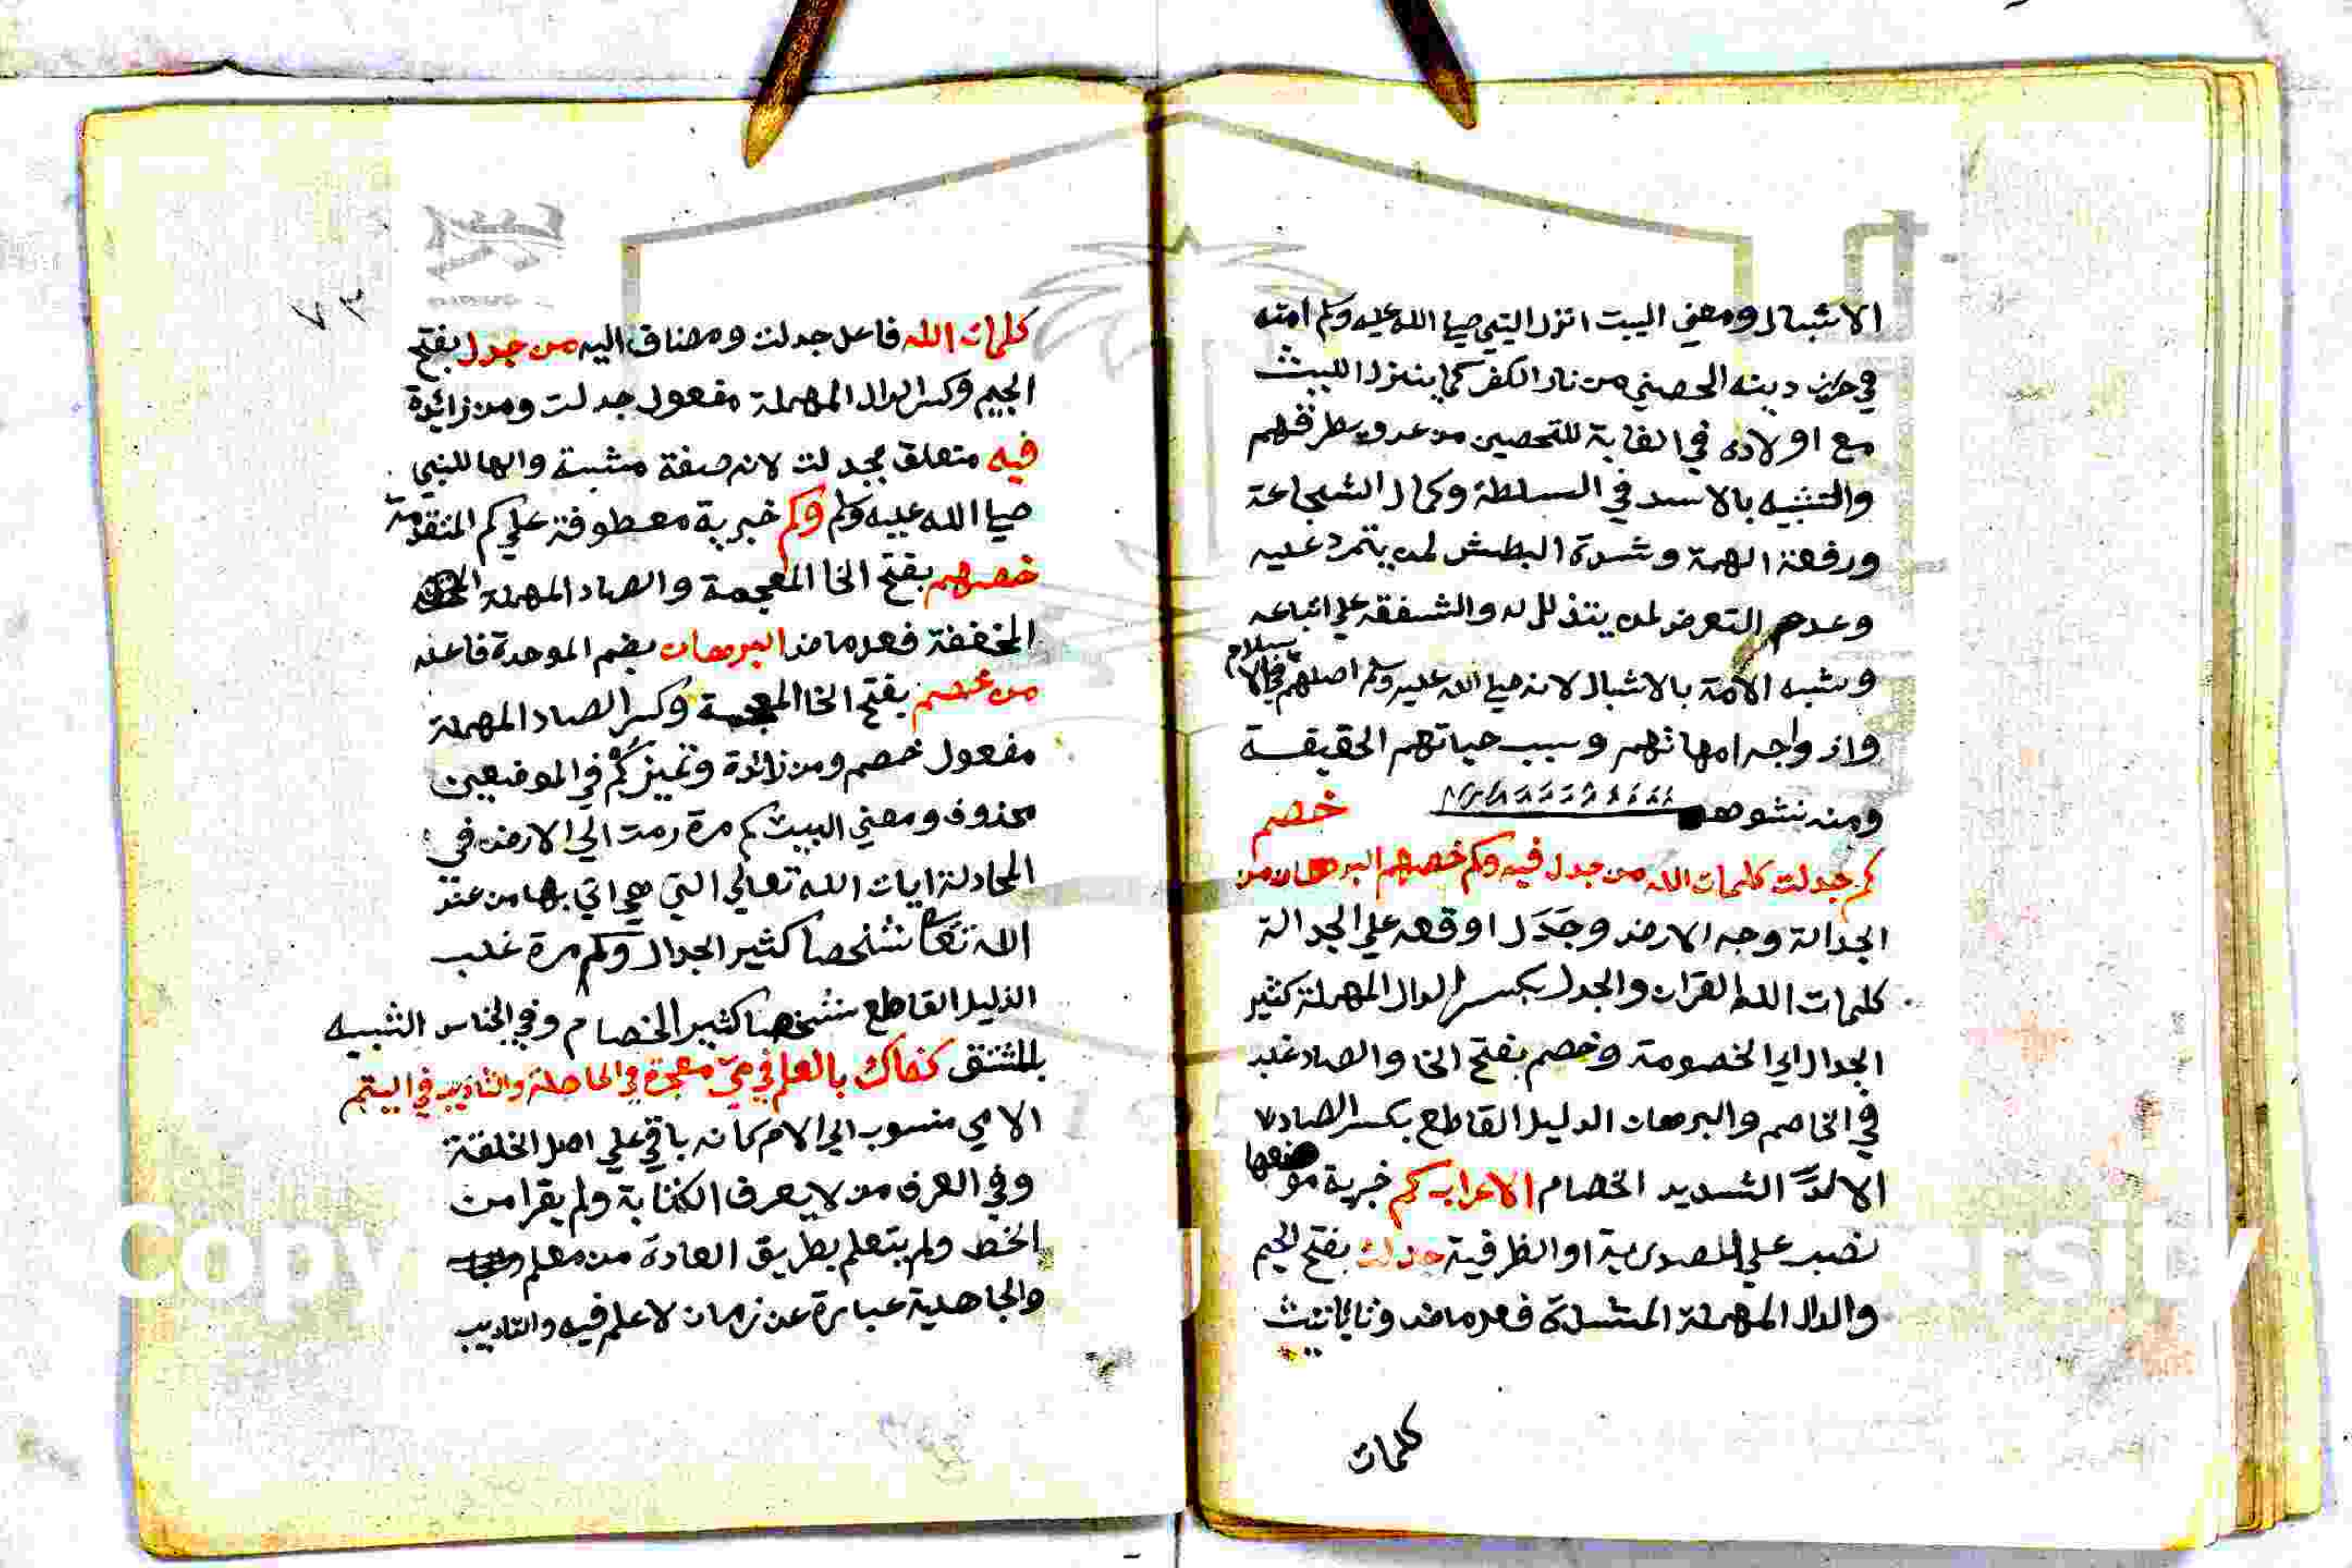 الاشبال ومعني البيت انزل النبي صلي الله عليه وسلم امته
في حرز دينه الحصني من نار الكفر كما ينزل الليث
مع اولاده في الغابة للتحصين من عدو يطرقهم
والتشبيه بالاسد في السلطة وكمال الشجاعة
ورفعة الهمة وشدة البطش لمن يتمرد عليه
وعدم التعرض لمن يتذلل له والشفقة علي اتباعه
وشبه الامة بالاشبال لانه صلي الله عليه وسلم اصلهم في الاسلام
وازواجه امهاتهم وسبب حياتهم الحقيقة
ومنه نشوهم
خصم
كم جدلت كلمات الله من جدل فيه وكم خصم البرهان من
الجدالة وجه الارض وجَدَل اوقعه علي الجدالة
كلمات الله القران والجدل بكسر الدال المهملة كثير
الجدال اي الخصومة وخصم بفتح الخا والصاد غلب
في الخاصم والبرهان الدليل القاطع بكسر الصاد
الالدّ الشديد الخصام الاعراب كم خبرية موضعها
نصب علي المصدرية او الظرفية جدلت بفتح الجيم
والدال المهملة المشددة فعل ماض وتا التانيث
كلمات
٧٣
كلمات الله فاعل جدلت ومضاف اليه من جدل بفتح
الجيم وكسر الدال المهملة مفعول جدلت ومن زائدة
فيه متعلق بجدلت لانه صفة مشبة والها للنبي
صلي الله عليه وسلم وكم خبرية معطوفة علي كم المتقدمة
خصم بفتح الخا المعجمة والصاد المهملة
المخففة فعل ماض البرهان بضم الموحدة فاعله
من خصم بفتح الخا المعجمة وكسر الصاد المهملة
مفعول خصم ومن زائدة وتميز كم في الموضعين
محذوف ومعني البيت كم مرة رمت الي الارض في
المجادلة ايات الله تعالي التي هي اتي بها من عند
الله تعا شخصا كثير الجدال وكم مرة غلب
الدليل القاطع شخصا كثير الخصام وفي الجناس الشبيه
بالمشتق كفاك بالعلم في الامي معجزة في الجاهلة والتاديب في اليتم
الامي منسوب الي الام كانه باقي علي اصل الخلقة
وفي العرف من لا يعرف الكتابة ولم يقرا من
الخط ولم يتعلم بطريق العادة من معلم
والجاهلية عبارة عن زمان لا علم فيه والتاديب
Copy
rsity